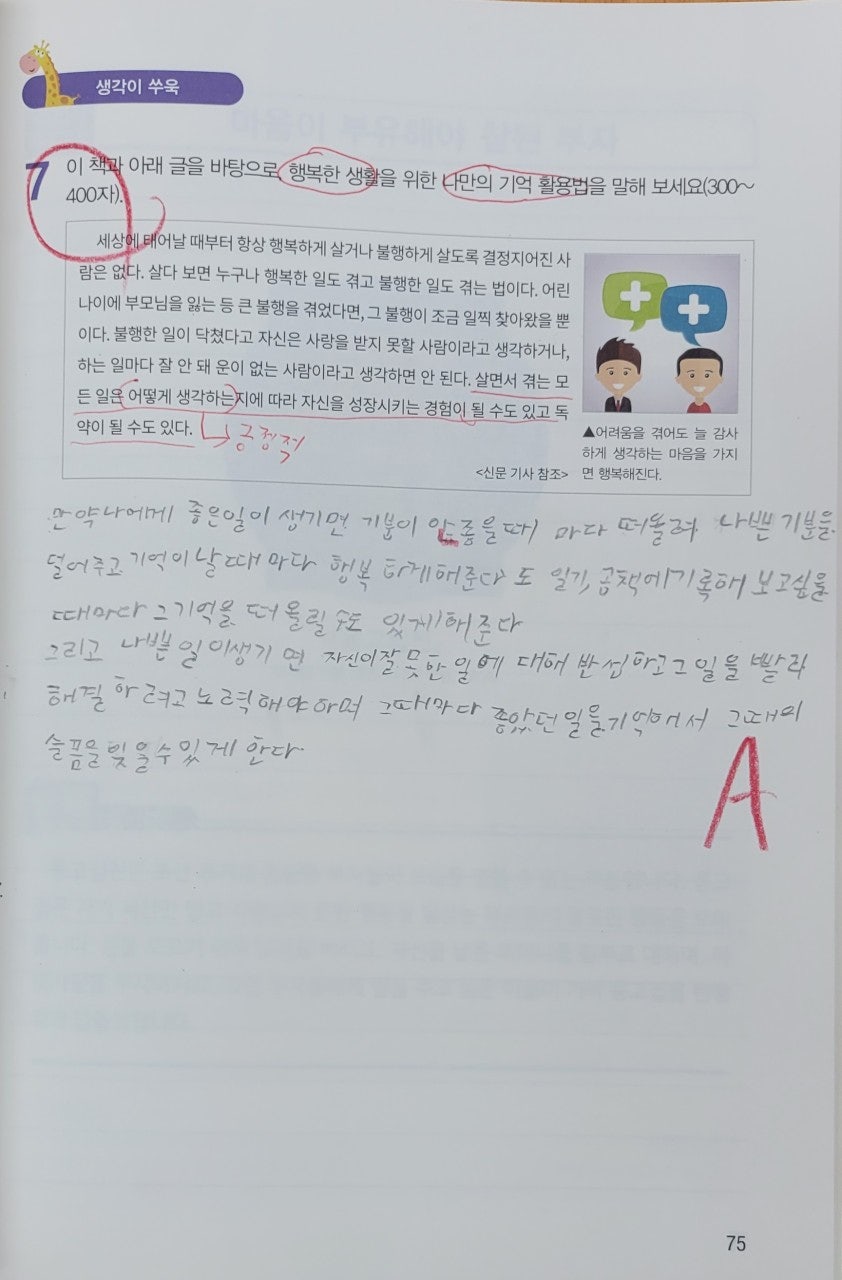 생각이 쑤욱
7 이 책과 아래 글을 바탕으로, 행복한 생활을 위한 나만의 기억 활용법을 말해 보세요(300~
400자).
세상에 태어날 때부터 항상 행복하게 살거나 불행하게 살도록 결정지어진 사
람은 없다. 살다 보면 누구나 행복한 일도 겪고 불행한 일도 겪는 법이다. 어린
나이에 부모님을 잃는 등 큰 불행을 겪었다면, 그 불행이 조금 일찍 찾아왔을 뿐
이다. 불행한 일이 닥쳤다고 자신은 사랑을 받지 못할 사람이라고 생각하거나,
하는 일마다 잘 안 돼 운이 없는 사람이라고 생각하면 안 된다. 살면서 겪는 모
든 일은 어떻게 생각하는지에 따라 자신을 성장시키는 경험이 될 수도 있고 독
약이 될 수도 있다.
긍정적
<신문 기사 참조>
▲어려움을 겪어도 늘 감사
하게 생각하는 마음을 가지
면 행복해진다.
만약나에게 좋은일이 생기면 기분이 안좋을때 마다 떠올려 나쁜기분을
덜어주고 기억이날때마다 행복 하게해준다 또 일기,공책에기록해 보고싶을
때마다 그기억을 떠 올릴 수도 있게해준다
그리고 나쁜일이생기면 자신이잘못한일에 대해 반성하고그일을 빨리
해결하려고 노력해야하며 그때마다 좋았던일을기억해서 그때의
슬픔을 잊을수있게 한다
A
75